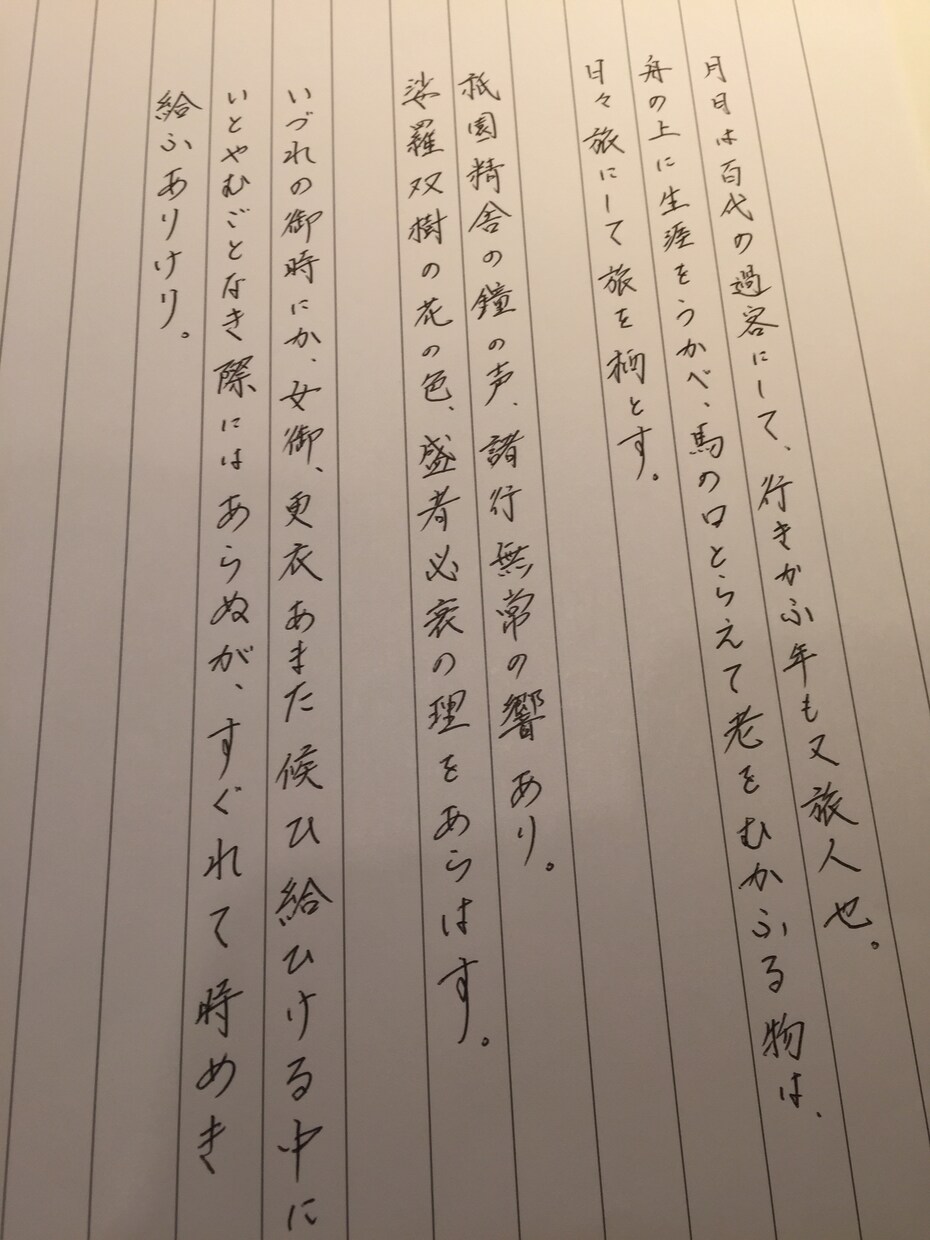 月日は百代の過客にして、行きかふ年も又旅人也。
舟の上に生涯をうかべ、馬の口とらえて老をむかふる物は、
日々旅にして旅を栖とす。
祇園精舎の鐘の声、諸行無常の響あり。
娑羅双樹の花の色、盛者必衰の理をあらはす。
いづれの御時にか、女御、更衣あまた候ひ給ひける中に
いとやむごとなき際にはあらぬが、すぐれて時めき
給ふありけり。